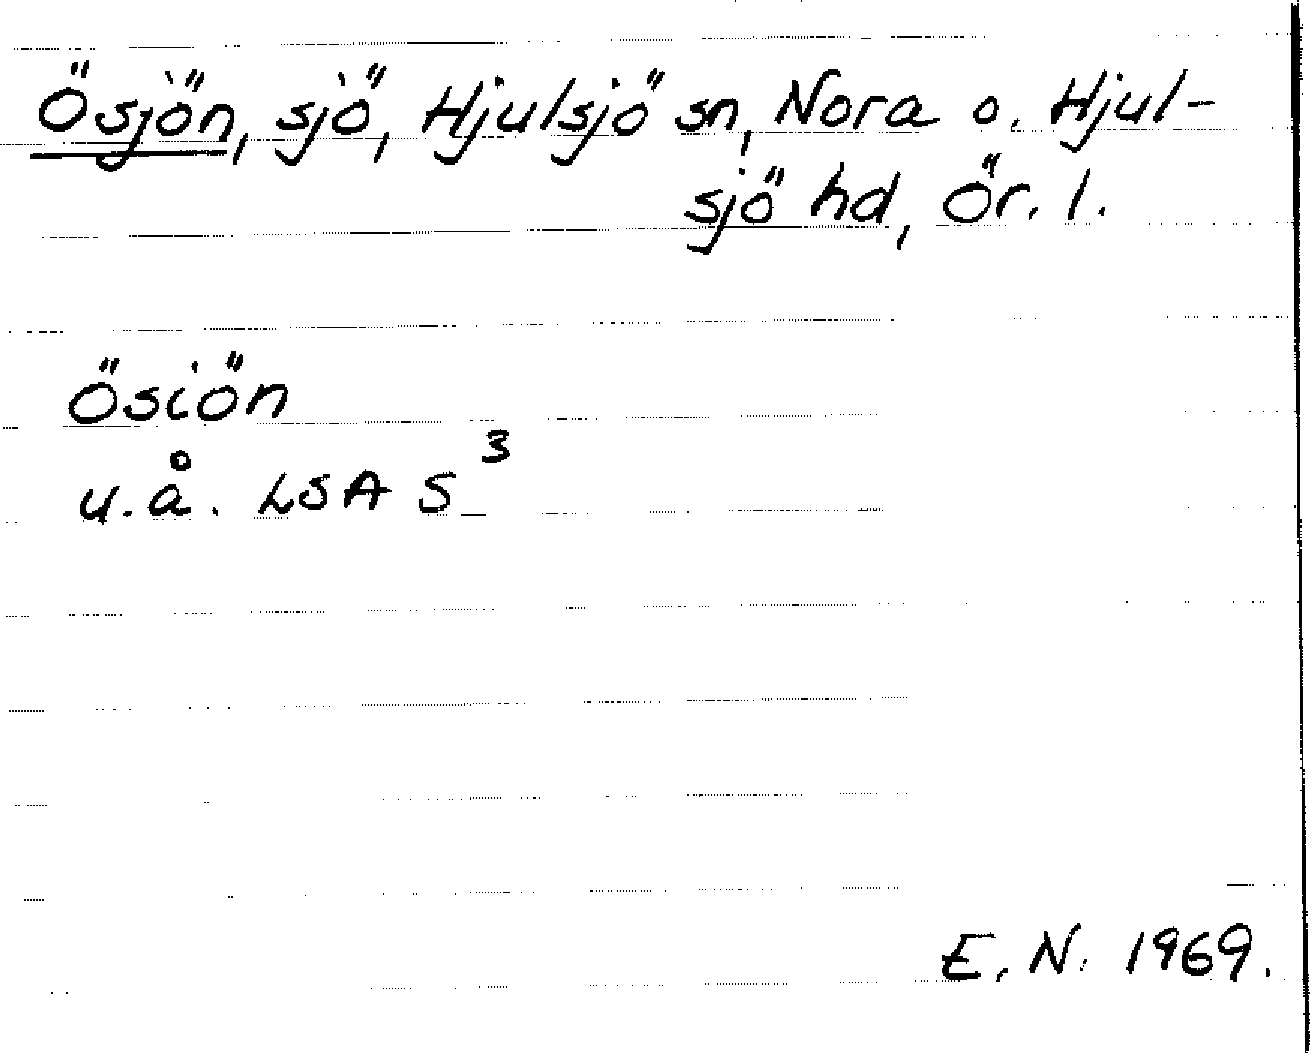 Ösjön, sjö, Hjulsjö sn, Nora o. Hjul-
sjö hd, Ör. l.
Ösiön
u.å. LSA S³
E. N. 1969.